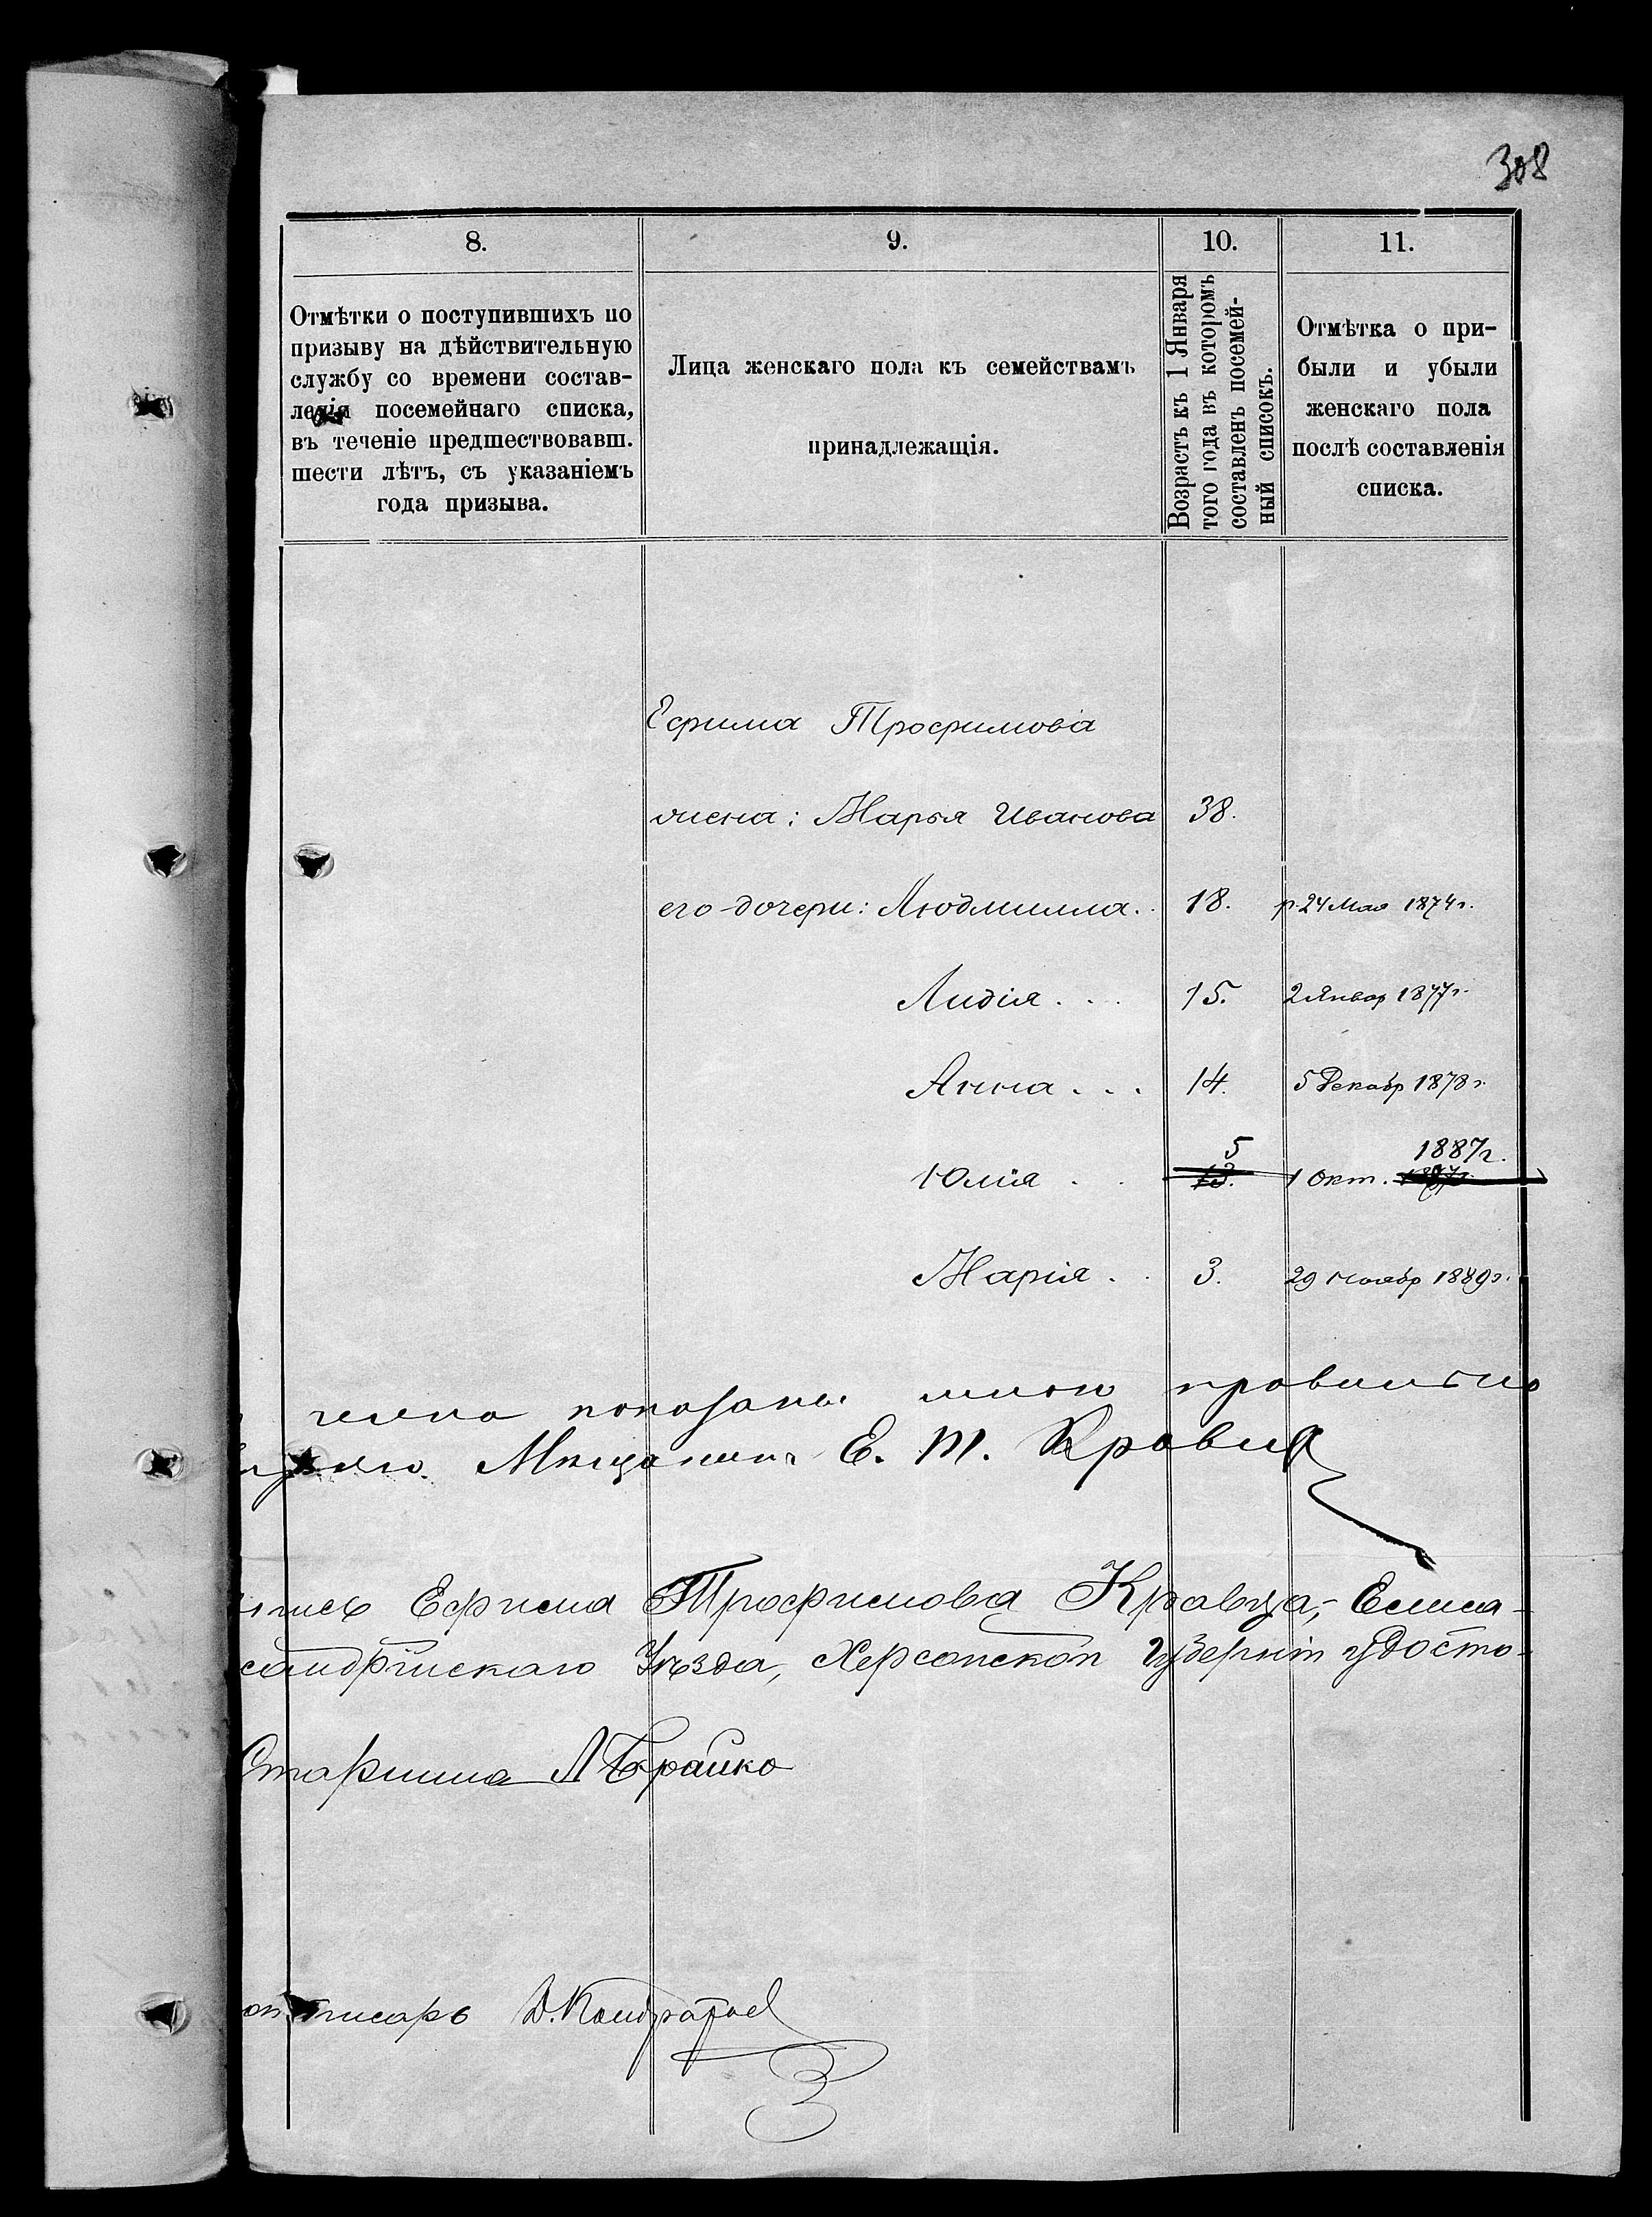 308
8.
9.
10.
11.
Отмѣтки о поступившихъ по
призыву на дѣйствительную
службу со времени состав-
ленія посемейнаго списка,
въ теченіе предшествовавш.
шести лѣтъ, съ указаніемъ
года призыва.
Лица женскаго пола къ семействамъ
принадлежащія.
Возрастъ къ 1 Января
того года въ которомъ
составленъ посемей-
ный списокъ.
Отмѣтка о при-
были и убыли
женскаго пола
послѣ составленія
списка.
Ефима Трофимова
жена: Марья Иванова 38.
его дочери: Людмилла. . 18. р. 24 Мая 1874 г.
Лидія . . . 15. 2 Январ 1877 г.
Анна . . . 14. 5 Декабр 1878 г.
5 1887 г.
Юлія . . 13. 1 Окт.
Марія . . 3. 29 Ноябр 1889 г.
показаны мною правильно
Мещанинъ Е. Т. Кравец
Ефима Трофимова Кравца, Елиса-
сандрійскаго Уѣзда, Херсонской Губерніи удосто-
Старшина Л Брайко
писарь Д. Кондратьев